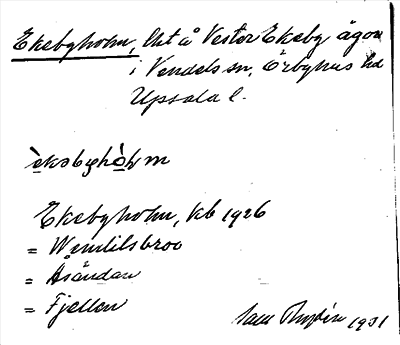 Ekebyholm, lht å Vester Ekeby ägor
i Vendels sn, Örbyhus hd
Upsala l.
èkəbyhòļm
Ekebyholm, kb 1926
= Wendelsbroo
= Åsändan
= Fjellen
1931